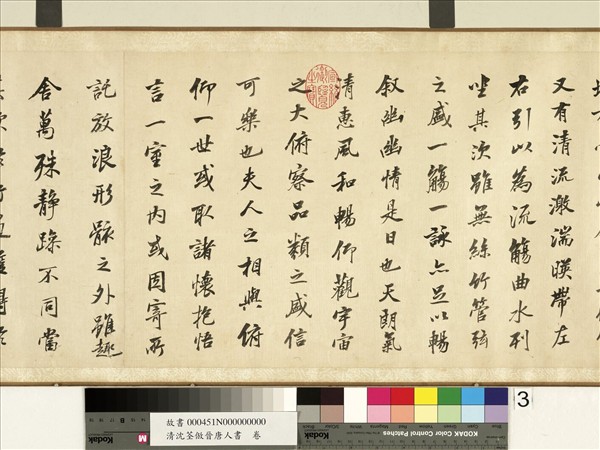 又有清流激湍暎帶左
右引以為流觴曲水列
坐其次雖無絲竹管弦
之盛一觴一詠亦足以暢
叙幽幽情是日也天朗氣
清惠風和暢仰觀宇宙
之大俯察品類之盛信
可樂也夫人之相與俯
仰一世或取諸懷抱悟
言一室之内或因寄所
託放浪形骸之外雖趣
舍萬殊静躁不同當
故書 000451N000000000
清沈荃倣晉唐人書 卷
Kodak
M
B
KODAK Color Control Patches
Kodak
3